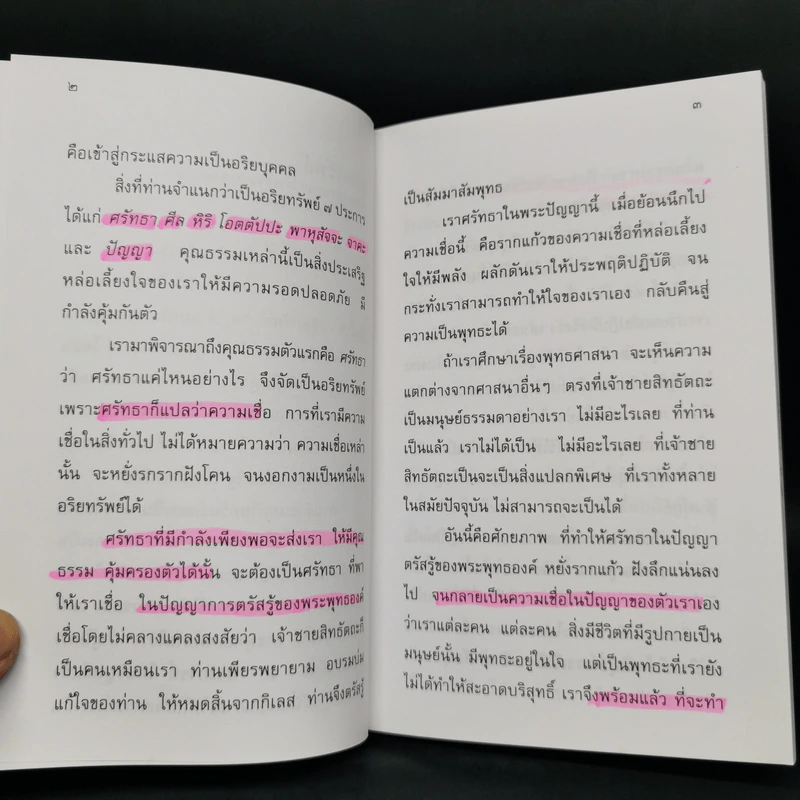 ๒
คือเข้าสู่กระแสความเป็นอริยบุคคล
สิ่งที่ท่านจำแนกว่าเป็นอริยทรัพย์ ๗ ประการ
ได้แก่ ศรัทธา ศีล หิริ โอตตัปปะ พาหุสัจจะ จาคะ
และ ปัญญา คุณธรรมเหล่านี้เป็นสิ่งประเสริฐ
หล่อเลี้ยงใจของเราให้มีความรอดปลอดภัย มี
กำลังคุ้มกันตัว
เรามาพิจารณาถึงคุณธรรมตัวแรกคือ ศรัทธา
ว่า ศรัทธาแค่ไหนอย่างไร จึงจัดเป็นอริยทรัพย์
เพราะศรัทธาก็แปลว่าความเชื่อ การที่เรามีความ
เชื่อในสิ่งทั่วไป ไม่ได้หมายความว่า ความเชื่อเหล่า
นั้น จะหยั่งรกรากฝังโคน จนงอกงามเป็นหนึ่งใน
อริยทรัพย์ได้
ศรัทธาที่มีกำลังเพียงพอจะส่งเรา ให้มีคุณ
ธรรม คุ้มครองตัวได้นั้น จะต้องเป็นศรัทธา ที่พา
ให้เราเชื่อ ในปัญญาการตรัสรู้ของพระพุทธองค์
เชื่อโดยไม่คลางแคลงสงสัยว่า เจ้าชายสิทธัตถะก็
เป็นคนเหมือนเรา ท่านเพียรพยายาม อบรมบ่ม
แก้ใจของท่าน ให้หมดสิ้นจากกิเลส ท่านจึงตรัสรู้
๓
เป็นสัมมาสัมพุทธ
เราศรัทธาในพระปัญญานี้ เมื่อย้อนนึกไป
ความเชื่อนี้ คือรากแก้วของความเชื่อที่หล่อเลี้ยง
ใจให้มีพลัง ผลักดันเราให้ประพฤติปฏิบัติ จน
กระทั่งเราสามารถทำให้ใจของเราเอง กลับคืนสู่
ความเป็นพุทธะได้
ถ้าเราศึกษาเรื่องพุทธศาสนา จะเห็นความ
แตกต่างจากศาสนาอื่นๆ ตรงที่เจ้าชายสิทธัตถะ
เป็นมนุษย์ธรรมดาอย่างเรา ไม่มีอะไรเลย ที่ท่าน
เป็นแล้ว เราไม่ได้เป็น ไม่มีอะไรเลย ที่เจ้าชาย
สิทธัตถะเป็นจะเป็นสิ่งแปลกพิเศษ ที่เราทั้งหลาย
ในสมัยปัจจุบัน ไม่สามารถจะเป็นได้
อันนี้คือศักยภาพ ที่ทำให้ศรัทธาในปัญญา
ตรัสรู้ของพระพุทธองค์ หยั่งรากแก้ว ฝังลึกแน่นลง
ไป จนกลายเป็นความเชื่อในปัญญาของตัวเราเอง
ว่าเราแต่ละคน แต่ละคน สิ่งมีชีวิตที่มีรูปกายเป็น
มนุษย์นั้น มีพุทธะอยู่ในใจ แต่เป็นพุทธะที่เรายัง
ไม่ได้ทำให้สะอาดบริสุทธิ์ เราจึงพร้อมแล้ว ที่จะทำ